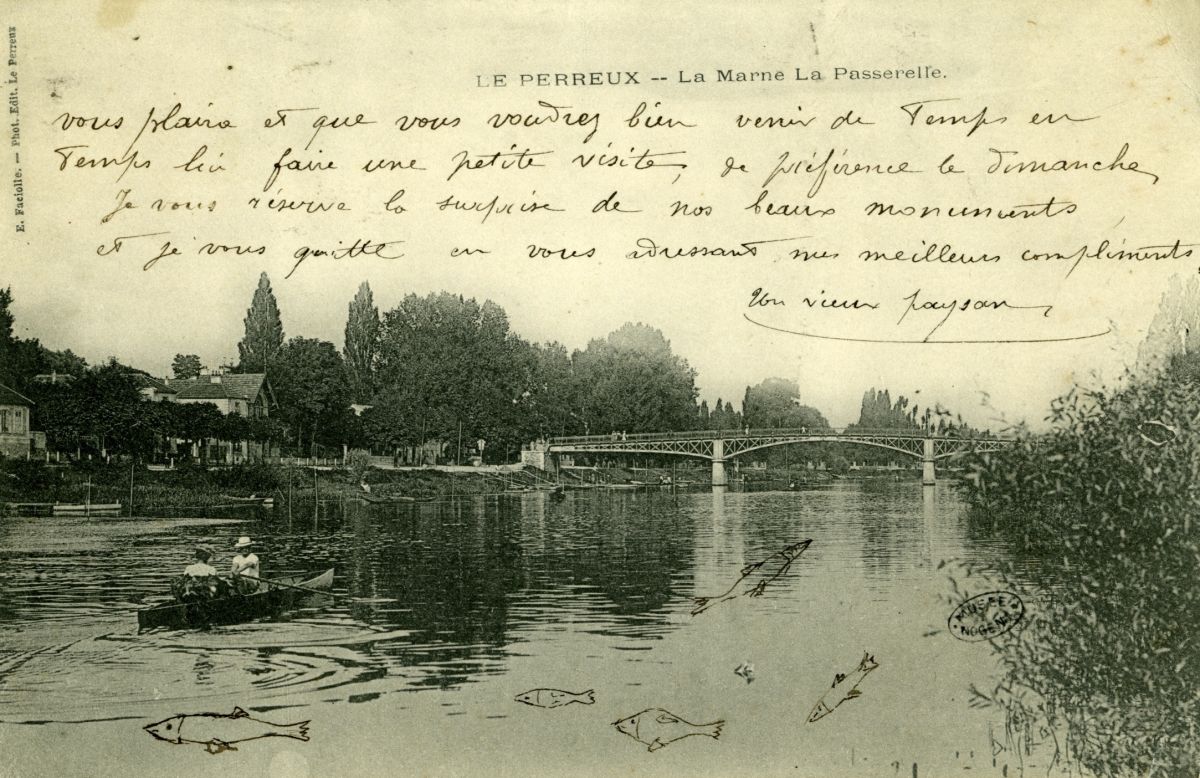 LE PERREUX -- La Marne La Passerelle.
E. Faciolle. — Phot. Edit. Le Perreux
vous plaira et que vous voudrez bien venir de Temps en
Temps lui faire une petite visite, de préférence le dimanche,
Je vous réserve la surprise de nos beaux monuments,
et je vous quitte en vous adressant mes meilleurs compliments,
Un vieux paysan,
MUSÉE
NOGENT